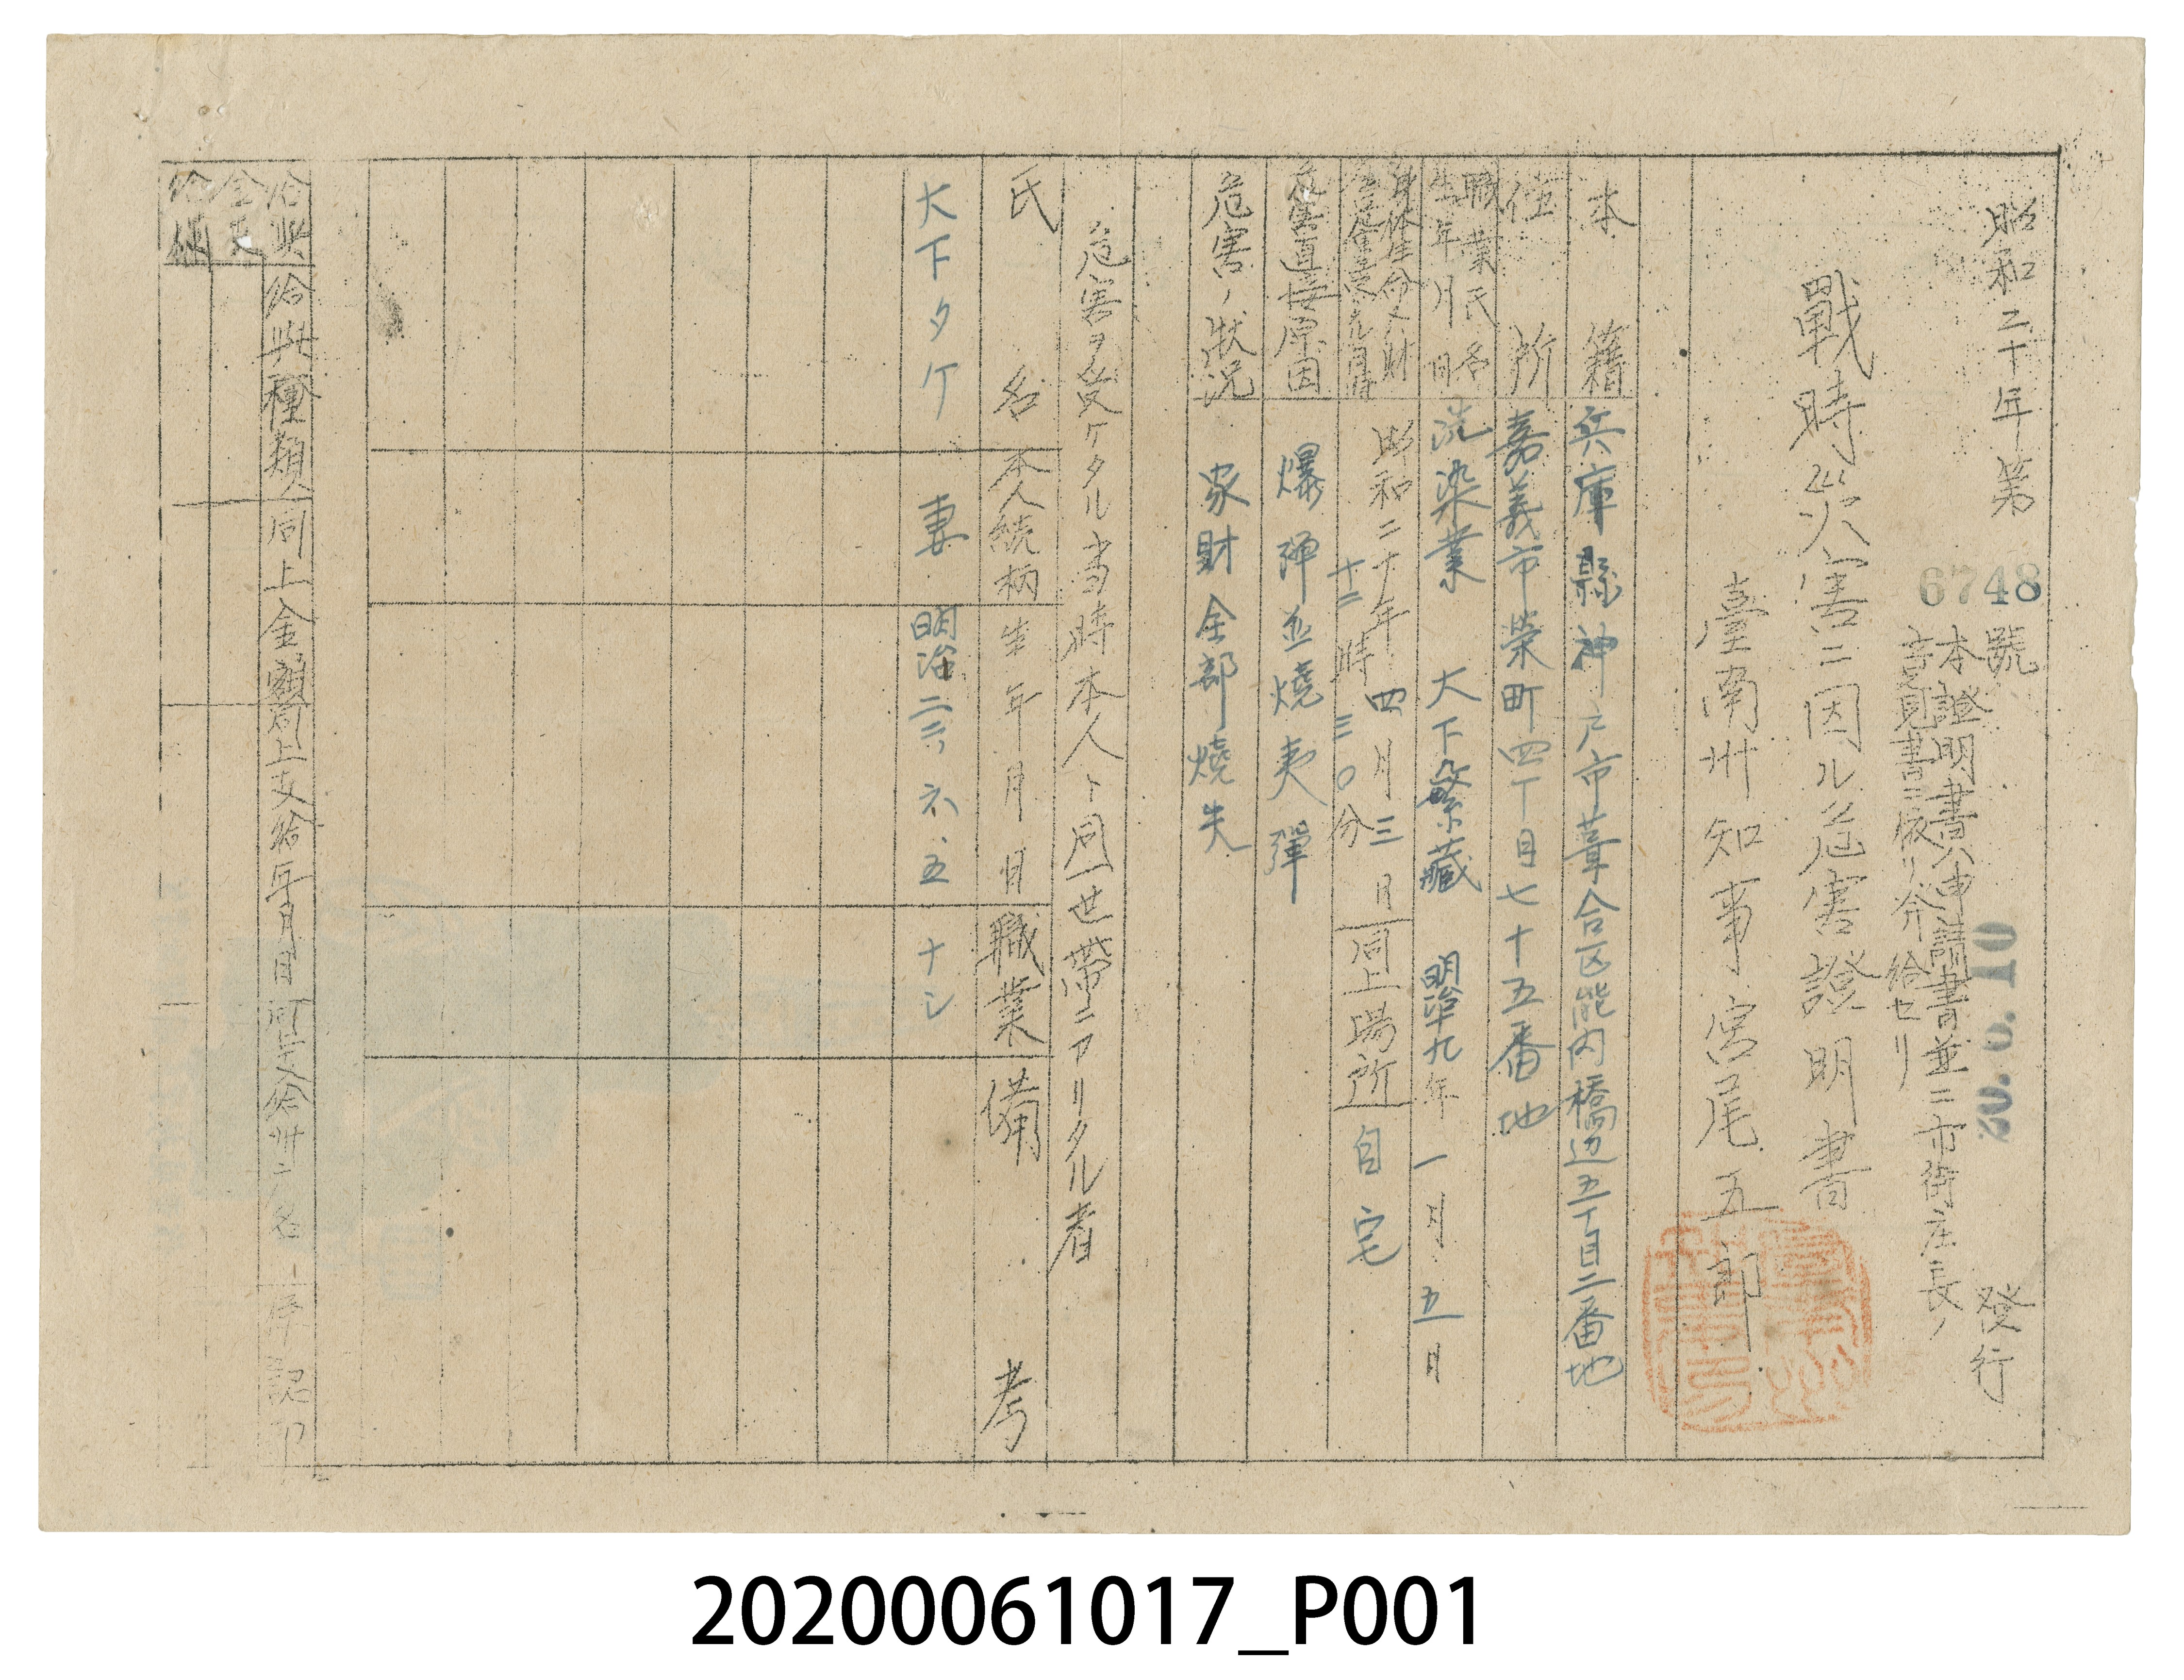 昭和二十年第6748號 發行
20. 5. 10
本證明書ハ申請書並ニ市街庄長ノ
意見書ニ依リ發給セリ
戰時災害ニ因ル危害證明書
臺南州知事宮尾五郎
本籍 兵庫縣神戸市葺合区熊内橋辺五丁目二番地
住所 嘉義市榮町四丁目七十五番地
職業氏名
生年月日
洗染業 大下繁藏 明治 九年一月五日
身体生命又ハ財
昭和二十年四月三日
十二時三〇分
同上場所 自宅
危害直接原因 爆弾並燒夷彈
危害ノ狀況 家財全部燒失
危害ヲ受ケタル当時本人ト同一世帶ニアリタル者
氏名 本人続柄 生年月日 職業 備考
大下タケ 妻 明治二三、六、五 ナシ
給與種類 同上金額 同上支給年月日
給與
20200061017_P001